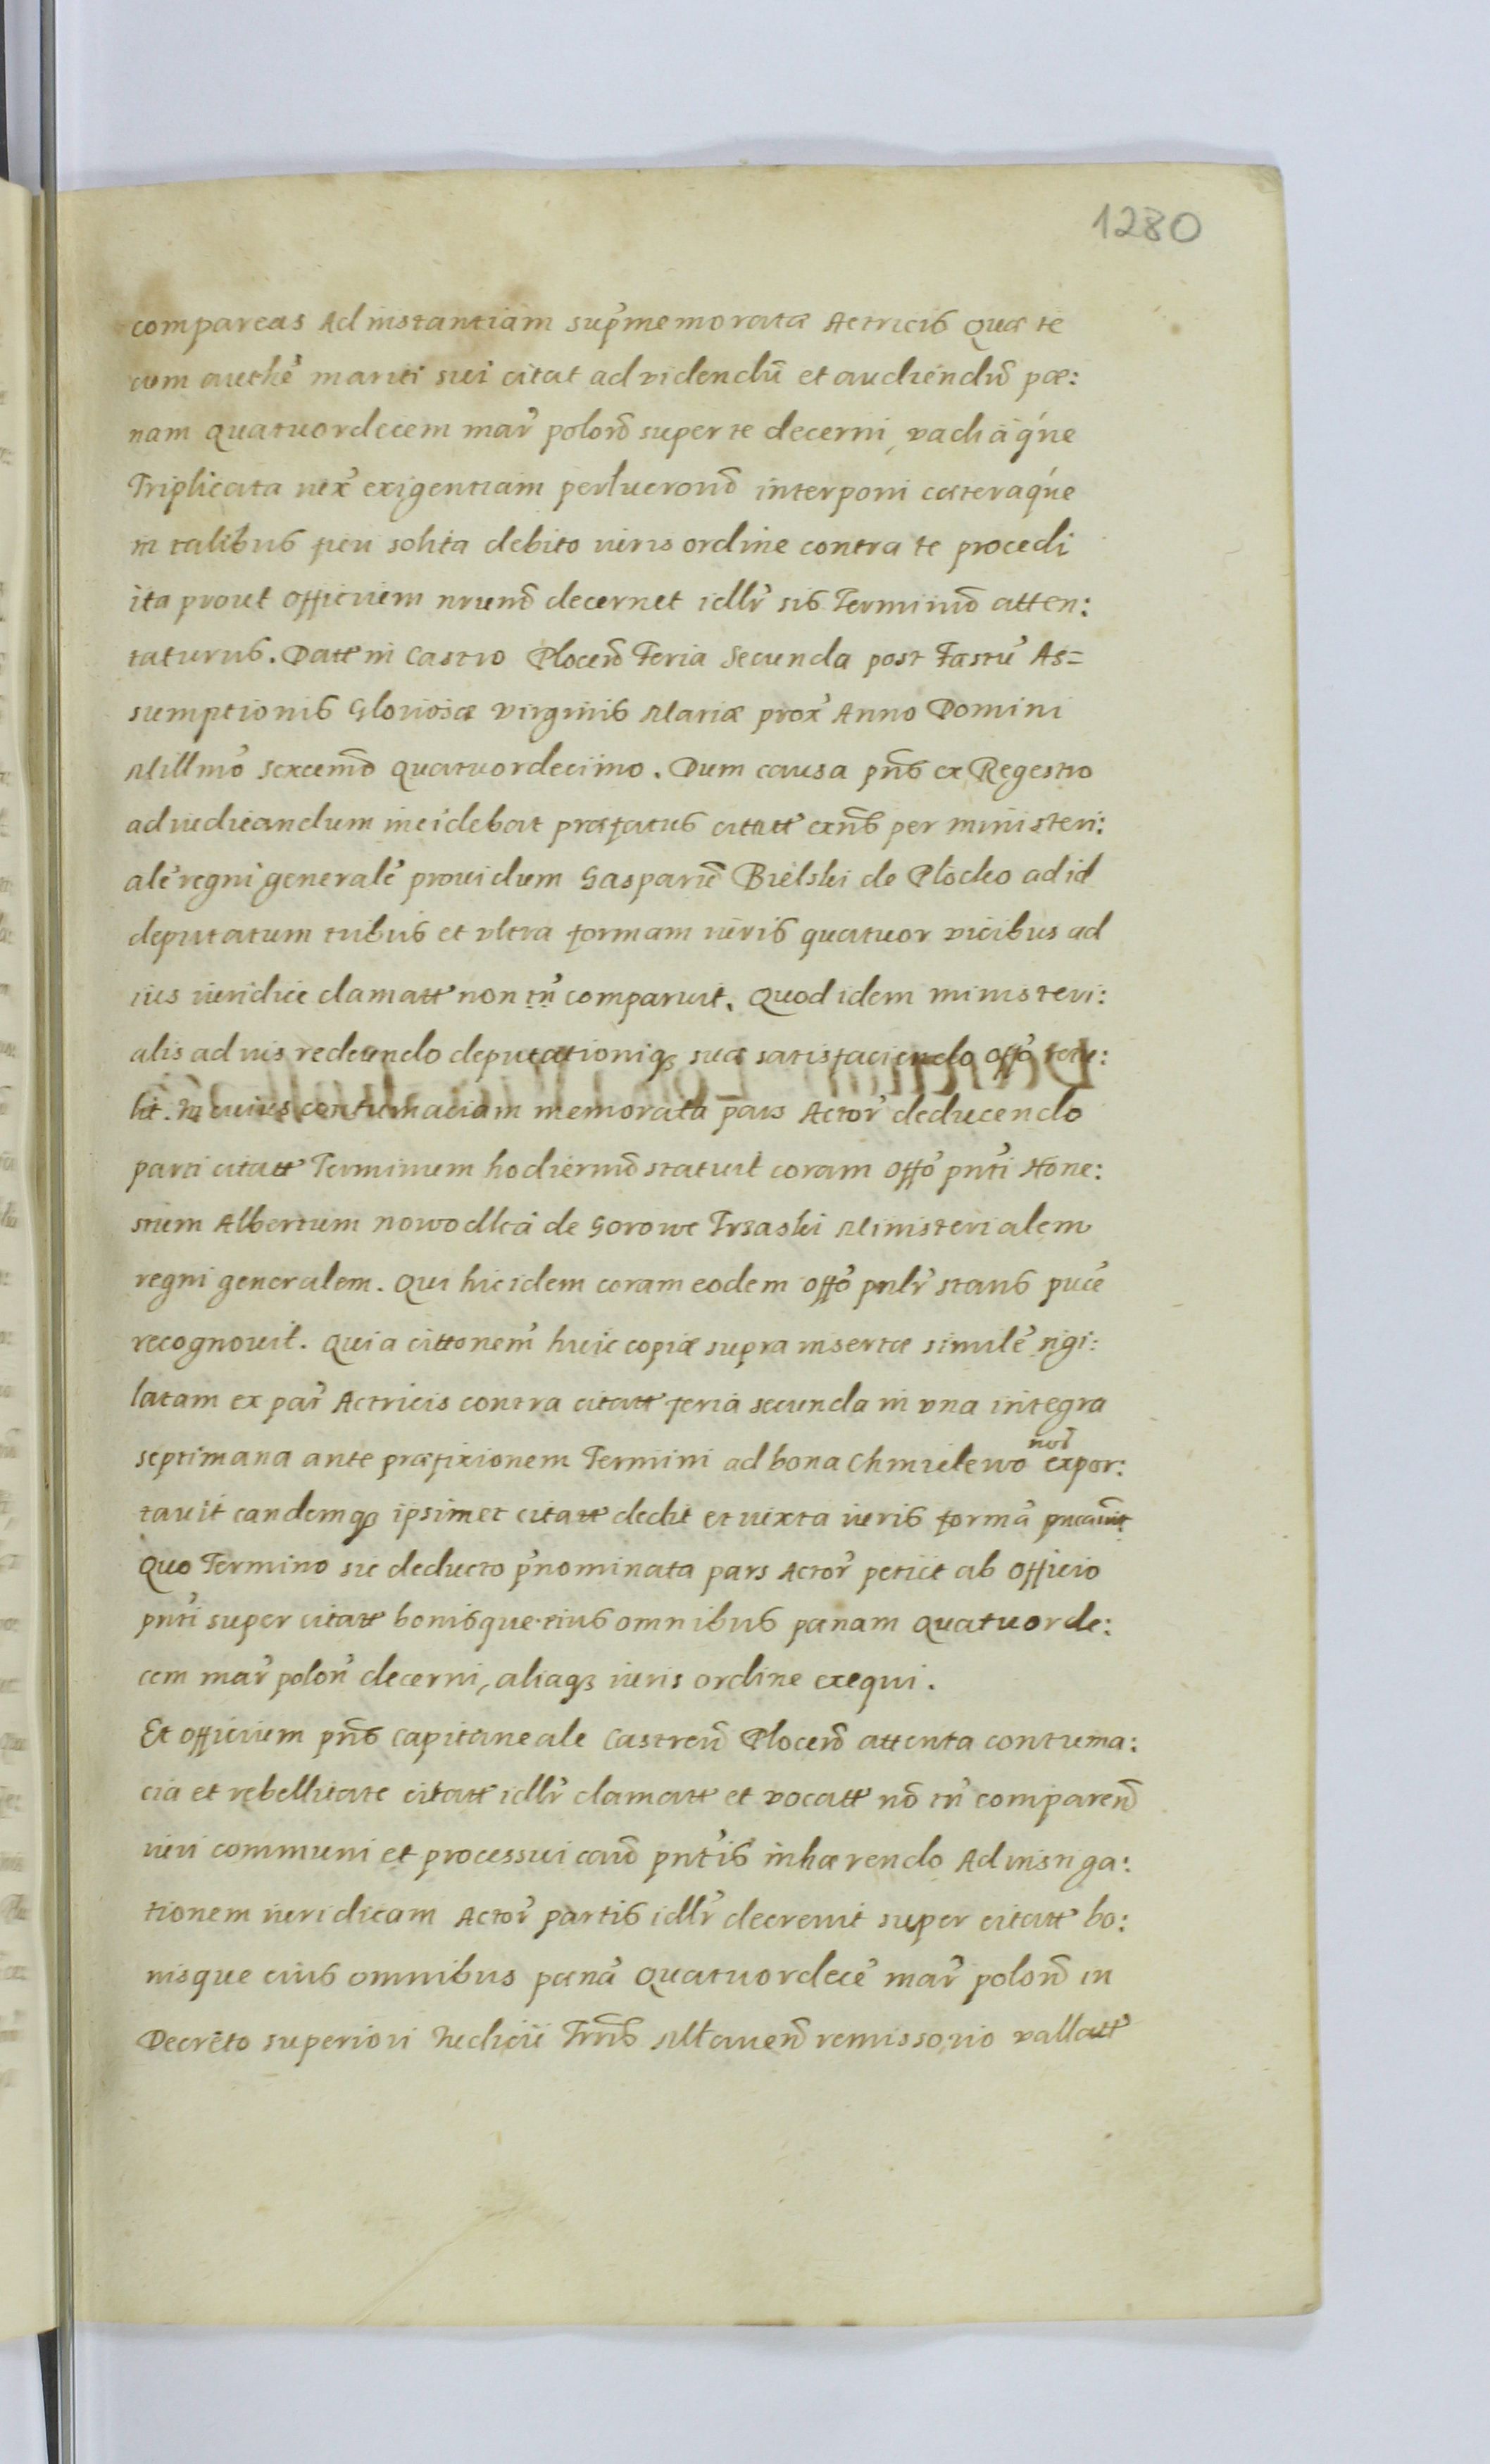 1280
compareas Ad instantiam sup̃memoratæ Actricis Quæ te
cum authẽ mariti sui citat ad videndũ et audiendũ pæ:
nam quatuordecem mar̃ polon̄ super te decerni, vadiáq́ue
Triplicata iux̃ exigentiam perlucron̄ interponi cæteraq́ue
in talibus fieri solita debito iuris ordine contra te procedi
ita prout Officium nrum̃ decernet idlr̃ sis Terminum̃ atten:
taturus. Datt in Castro Plocen̄ Feria Secunda post Fastũ As=
sumptionis Gloriosæ Virginis Mariæ prox̃ Anno Domini
Millmõ sexcenmõ quatuordecimo. Dum causa pñs ex Regestro
ad iudicandum incidebat præfatus citatt exñs per ministeri:
alẽ regni generalẽ prouidum Gasparũ Bielski de Plocko ad id
deputatum tribus et vltra formam iuris quatuor vicibus ad
ius iuridice clamatt non tñ comparuit. Quod idem ministeri:
alis ad ius redeundo deputationiq3 suæ satisfaciendo offõ retu:
lit. In cuius contumaciam memorata pars Actor̃ deducendo
parti citatt Terminum hodiernũ statuit coram Offõ pñti Hone:
stum Albertum nowodlcá de Gorowe Trzaski Ministerialem
regni generalem. Qui hic idem coram eodem offõ pnlr̃ stans pucẽ
recognouit. Quia cittonem̃ huic copiæ supra insertæ similẽ sigi:
latam ex par̃ Actricis contra citatt feria secunda in vna integra
septimana ante præfixionem Termini ad bona Chmielewo not̃ expor:
tauit eandemq3 ipsimet citatt dedit et iuxta iuris formã
Quo Termino sic deducto p̃nominata pars Actor̃ petiit ab Officio
pñti super citatt bonisque eius omnibus pænam quatuorde:
cem mar̃ polon̄ decerni, aliaq3 iuris ordine exequi.
Et officium pñs Capitaneale Castren̄ Plocen̄ attenta contuma:
cia et rebellitate citatt idlr̃ clamatt et vocatt nõ tñ comparen̄
iuri communi et processui caũ pñtis inhærendo Ad instiga:
tionem iuridicam Actor̃ partis idlr̃ decreuit super citatt bo:
nisque eius omnibus pænã quatuordecẽ mar̃ polon̄ in
Decreto superiori Iudicii Trñs Mlauen̄ remissorio vallatt